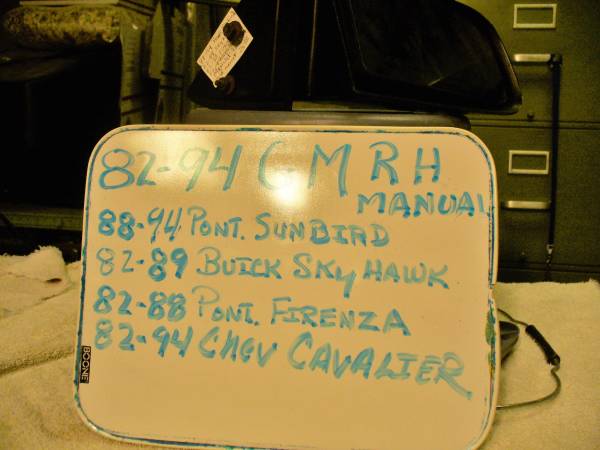 82-94 GM RH
MANUAL
88-94 PONT. SUNBIRD
82-89 BUICK SKYHAWK
82-88 PONT. FIRENZA
82-94 CHEV CAVALIER
BOONE